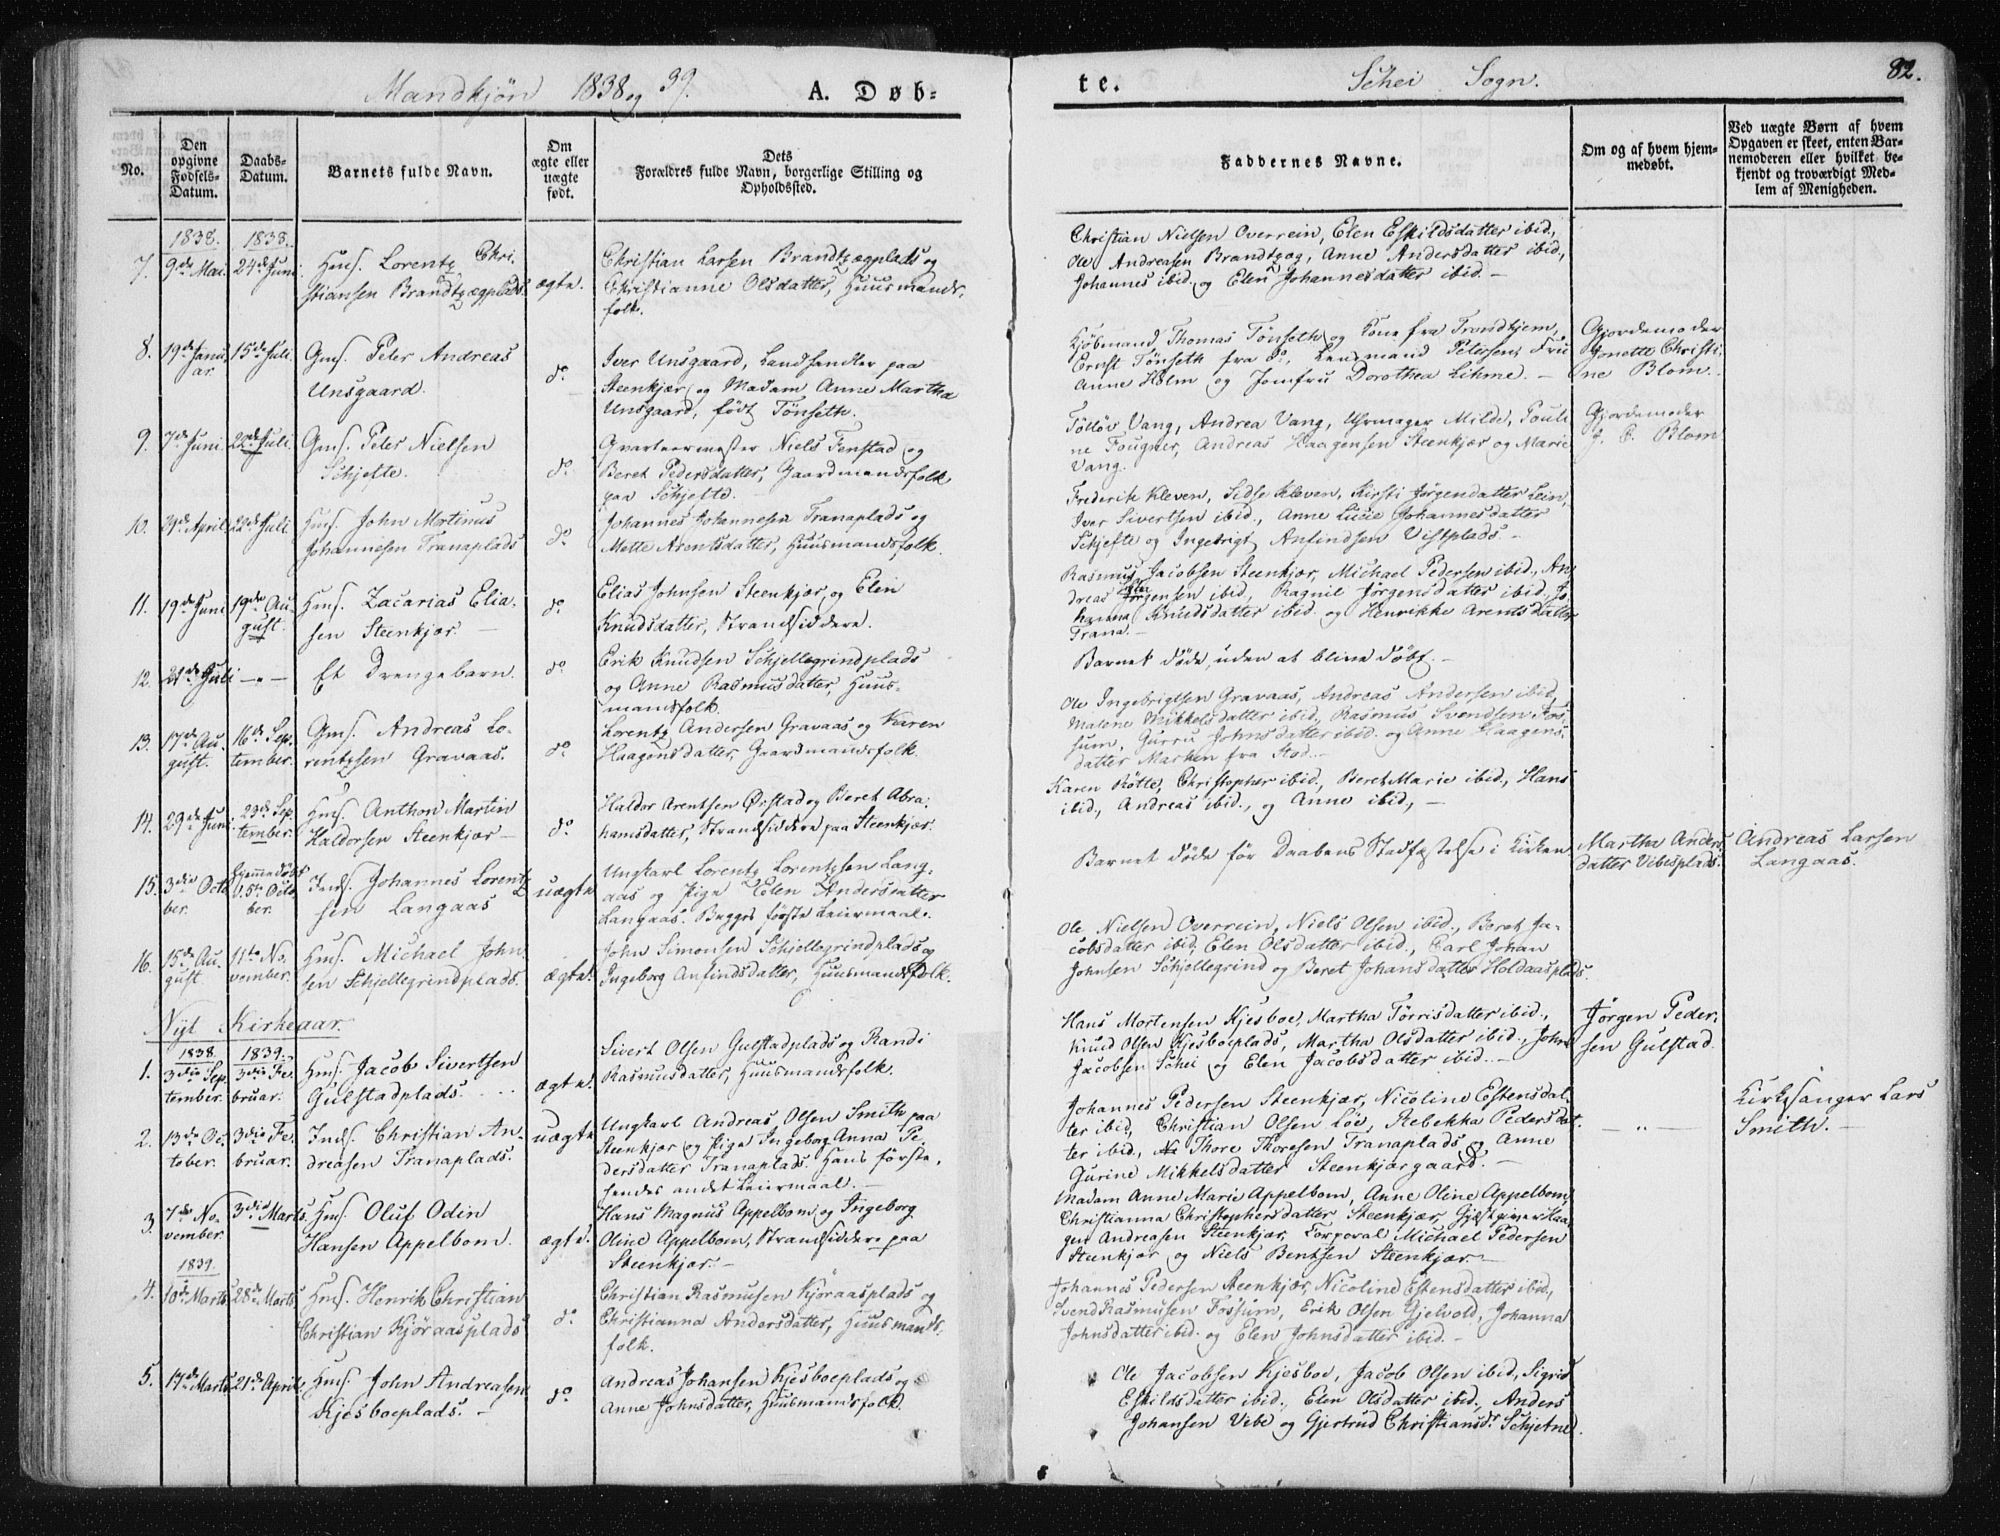 Mandkjøn 1838 og 39.
A. Døb-
te.
Schei Sogn.
82.
No.
Den opgivne Fødsels-Datum.
Daabs-Datum.
Barnets fulde Navn.
Om ægte eller uægte født.
Dets Forældres fulde Navn, borgerlige Stilling og Opholdssted.
Faddernes Navne.
Om og af hvem hjem-medøbt.
Ved uægte Børn af hvem Opgaven er skeet, enten Bar-nemoderen eller hvilket be-kjendt og troværdigt Med-lem af Menigheden.
1838. 1838.
7. 9de Mai 24de Juni
Hms. Lorentz Chri-
stiansen Brandtzægplads.
ægte.
Christian Larsen Brandtzægplads og
Christianne Olsdatter, Huusmands-
folk.
Christian Nielsen Overrein, Elen Eskildsdatter ibid.,
Ole Andreasen Brandtzæg, Anne Andersdatter ibid.,
Johannes ibid. og Elen Johannesdatter ibid. –
8. 19de Janu-
ar.
15de Juli.
Gms. Peter Andreas
Unsgaard.
do.
Iver Unsgaard, Landhandler paa
Steenkjær og Madam Anne Martha
Unsgaard, født Tönseth.
Kjöbmand Thomas Tönseth og Kone fra Trondhjem,
Ernst Tönseth fra do., Lensmand Petersen, Fru
Anne Holm og Jomfru Dorothea Lihme. –
Gjordemoder
Jonette Christi-
ne Blom.
9. 7de Juni 22de Juli
Gms. Peter Nielsen
Schjefte.
do.
Qvarteermester Niels Fenstad og
Beret Pedersdatter, Gaardmandsfolk
paa Schjefte.
Töllöv Vang, Andrea Vang, Uhrmager Milde, Pouli-
ne Fougner, Andreas Haagensen Steenkjær og Marie
Vang.
Gjordemoder
J. C. Blom
10. 21de April 22de Juli
Hms. John Martinus
Johannesen Tranaplads
do.
Johannes Johannesen Tranaplads og
Mette Arentsdatter, Huusmandsfolk.
Frederik Kleven, Sidse Kleven, Kirsti Jörgendatter Lein,
Iver Sivertsen ibid., Anne Lucie Johannesdatter
Schjefte og Ingebrigt Anfindsen Vistplads. –
11. 19de Juni 19de Au-
gust.
Hms. Zacarias Elia-
sen Steenkjær. –
do.
Elias Johnsen Steenkjær, og Elen
Knudsdatter, Strandsiddere.
Rasmus Jacobsen Steenkjær, Michael Pedersen ibid., An-
dreas Jörgensen ibid, Ragnil Jörgensdatter ibid. Jo-
hanna Knudsdatter ibid. og Henrikke Arentsdatter
Trana. –
12. 21de Juli –"–
Et Drengebarn.
do.
Erik Knudsen Schjellegrindplads
og Anne Rasmusdatter, Huus-
mandsfolk.
Barnet döde, uden at blive döbt. –
13. 17de Au-
gust.
16de Sep-
tember.
Gms. Andreas Lo-
rentzsen Gravaas.
do.
Lorentz Andersen Gravaas og Karen
Haagensdatter, Gaardmandsfolk.
Ole Ingebrigtsen Gravaas, Andreas Andersen ibid,
Malene Mikkelsdatter ibid., Rasmus Svendsen Fos-
sum, Gurru Johnsdatter ibid. og Anne Haagens-
datter Marken fra Stod. –
14. 29de Juni 23de Sep-
tember.
Hms. Anthon Martin
Haldorsen Steenkjær –
do.
Haldor Arentsen Ørstad og Beret Abra-
hamsdatter, Strandsiddere paa Steenkjær.
Karen Rötte, Christopher ibid., Beret Marie ibid., Hans
ibid., Andreas ibid., og Anne ibid, –
15. 3die Octo-
ber.
Hjemmedöbt
d. 5te Octo-
ber.
Inds. Johannes Lorentz-
sen Langaas
uægte
Ungkarl Lorentz Lorentzsen Lang-
aas og Pige Elen Andersdatter
Langaas. Begges förste Leiermaal.
Barnet döde för Daabens Stadfæstelse i Kirken
Martha Anders-
datter Vibesplads.
Andreas Larsen
Langaas.
16. 15de Au-
gust.
11te No-
vember.
Hms. Michael John-
sen Schjellegrindplads.
ægte.
John Simonsen Schjellegrindplads og
Ingeborg Anfindsdatter, Huusmandsfolk.
Ole Nielsen Overrein, Niels Olsen ibid., Beret Ja-
cobsdatter ibid, Elen Olsdatter ibid., Carl Johan
Johnsen Schjellegrind og Beret Johansdatter Holdaasplads.
Nyt Kirkeaar.
1838. 1839.
1. 3die Sep-
tember.
3die Fe-
bruar.
Hms. Jacob Sivertsen
Gulstadplads.
ægte.
Sivert Olsen Gulstadplads og Randi
Rasmusdatter, Huusmandsfolk.
Hans Mortensen Kjesboe, Martha Törrisdatter ibid.,
Knud Olsen Kjesboeplads, Martha Olsdatter ibid., John
Jacobsen Schei og Elen Jacobsdatter ibid. –
Jørgen Peder-
sen Gulstad.
2. 13de Oc-
tober.
3die Fe-
bruar.
Inds. Christian An-
dreasen Tranaplads.
uægte
Ungkarl Andreas Olsen Smith paa
Steenkjær og Pige Ingeborg Anna Pe-
dersdatter Tranaplads. Hans förste,
hendes andet Leiermaal. –
Johannes Pedersen Steenkjær, Nicoline Estensdat-
ter ibid, Christian Olsen Löe, Rebekka Pedersdat-
ter ibid, Thore Thoresen Tranaplads og Anne
Gurine Mikkelsdatter Steenkjærgaard. –
– " –
Kirkesanger Lars
Smith. –
3. 7de No-
vember.
3die Marts.
Hms. Oluf Odin
Hansen Appelbom.
ægte.
Hans Magnus Appelbom og Ingeborg
Oline Appelbom, Strandsiddere paa
Steenkjær. –
Madam Anne Marie Appelbom, Anne Oline Appelbom,
Christianna Christophersdatter Steenkjær, Gjæstgiver Haa-
gen Andreasen Steenkjær, Corporal Michael Pedersen
Steenkjær og Niels Bentsen Steenkjær –
1839.
4. 10de Marts 28de Marts
Hms. Henrik Christian
Christian Kjöraasplads
do.
Christian Rasmusen Kjöraasplads og
Christianna Andersdatter, Huusmands-
folk.
Johannes Pedersen Steenkjær, Nicoline Estensdatter ibid,
Svend Rasmusen Fossum, Erik Olsen Gjelvold, Johanna
Johnsdatter ibid. og Elen Johnsdatter ibid. –
5. 17de Marts 21de April.
Hms. John Andreasen
Kjesboeplads. –
do.
Andreas Johansen Kjesboeplads og
Anne Johnsdatter, Huusmandsfolk.
Ole Jacobsen Kjesboe, Jacob Olsen ibid, Sigrid
Eskildsdatter ibid., Elen Olsdatter ibid., Anders
Johansen Vibe og Gjertrud Christiansdr. Schjetne.